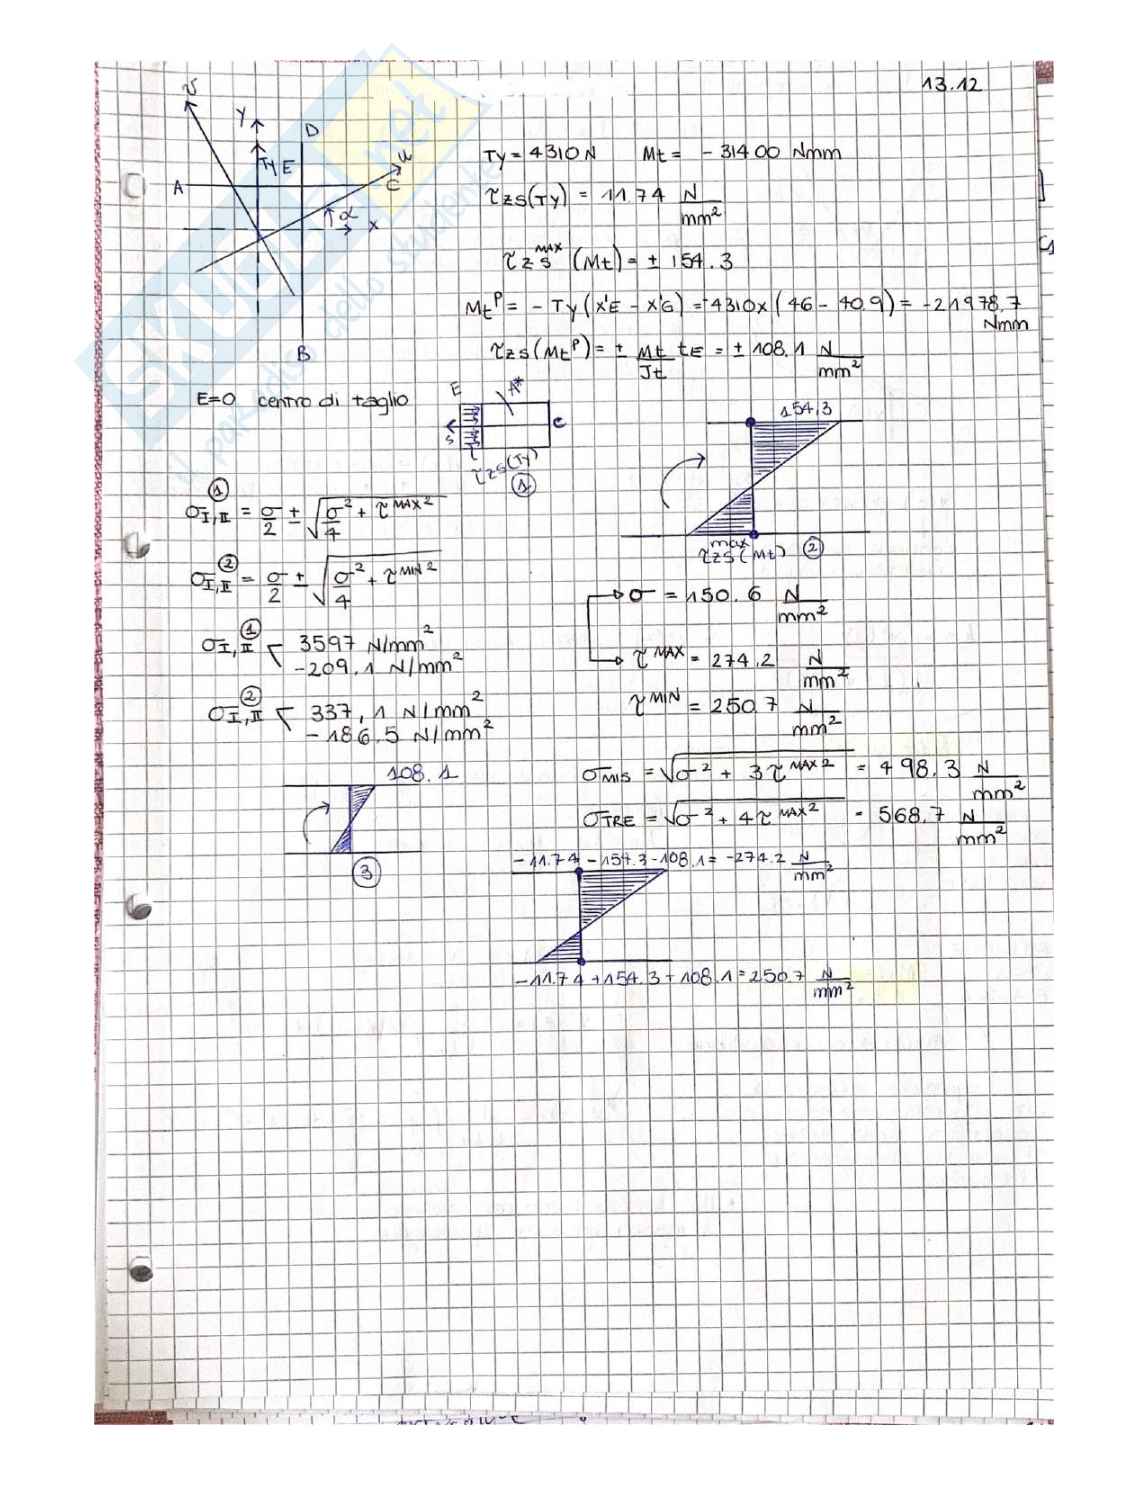 13.12
v
Y
D
Ty
E
u
A
C
α
x
B
Ty = 4310 N Mt = - 31400 Nmm
τzs(Ty) = 11.74 N/mm²
τzs^MAX (Mt) = ± 154.3
Mt^P = - Ty (x'E - x'G) = -4310 x (46 - 40.9) = -21978.7 Nmm
τzs(Mt^P) = ± Mt/Jt tE = ± 108.1 N/mm²
E=O centro di taglio
E
A*
C
s
τ
τzs(Ty)
①
154,3
τzs^max (Mt) ②
σI,II^① = σ/2 ± √(σ²/4 + τ^MAX²)
σI,II^② = σ/2 ± √(σ²/4 + τ^MIN²)
σI,II^① < 3597 N/mm²
-209.1 N/mm²
σI,II^② < 337,1 N/mm²
-186.5 N/mm²
σ = 150.6 N/mm²
τ^MAX = 274.2 N/mm²
τ^MIN = 250.7 N/mm²
108.1
③
σMIS = √(σ² + 3τ^MAX²) = 498.3 N/mm²
σTRE = √(σ² + 4τ^MAX²) = 568.7 N/mm²
-11.74 - 154.3 - 108.1 = -274.2 N/mm²
-11.74 + 154.3 + 108.1 = 250.7 N/mm²